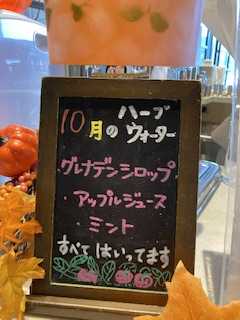 10月の ハーブウォーター
グレナデンシロップ
・アップルジュース
ミント
すべてはいってます